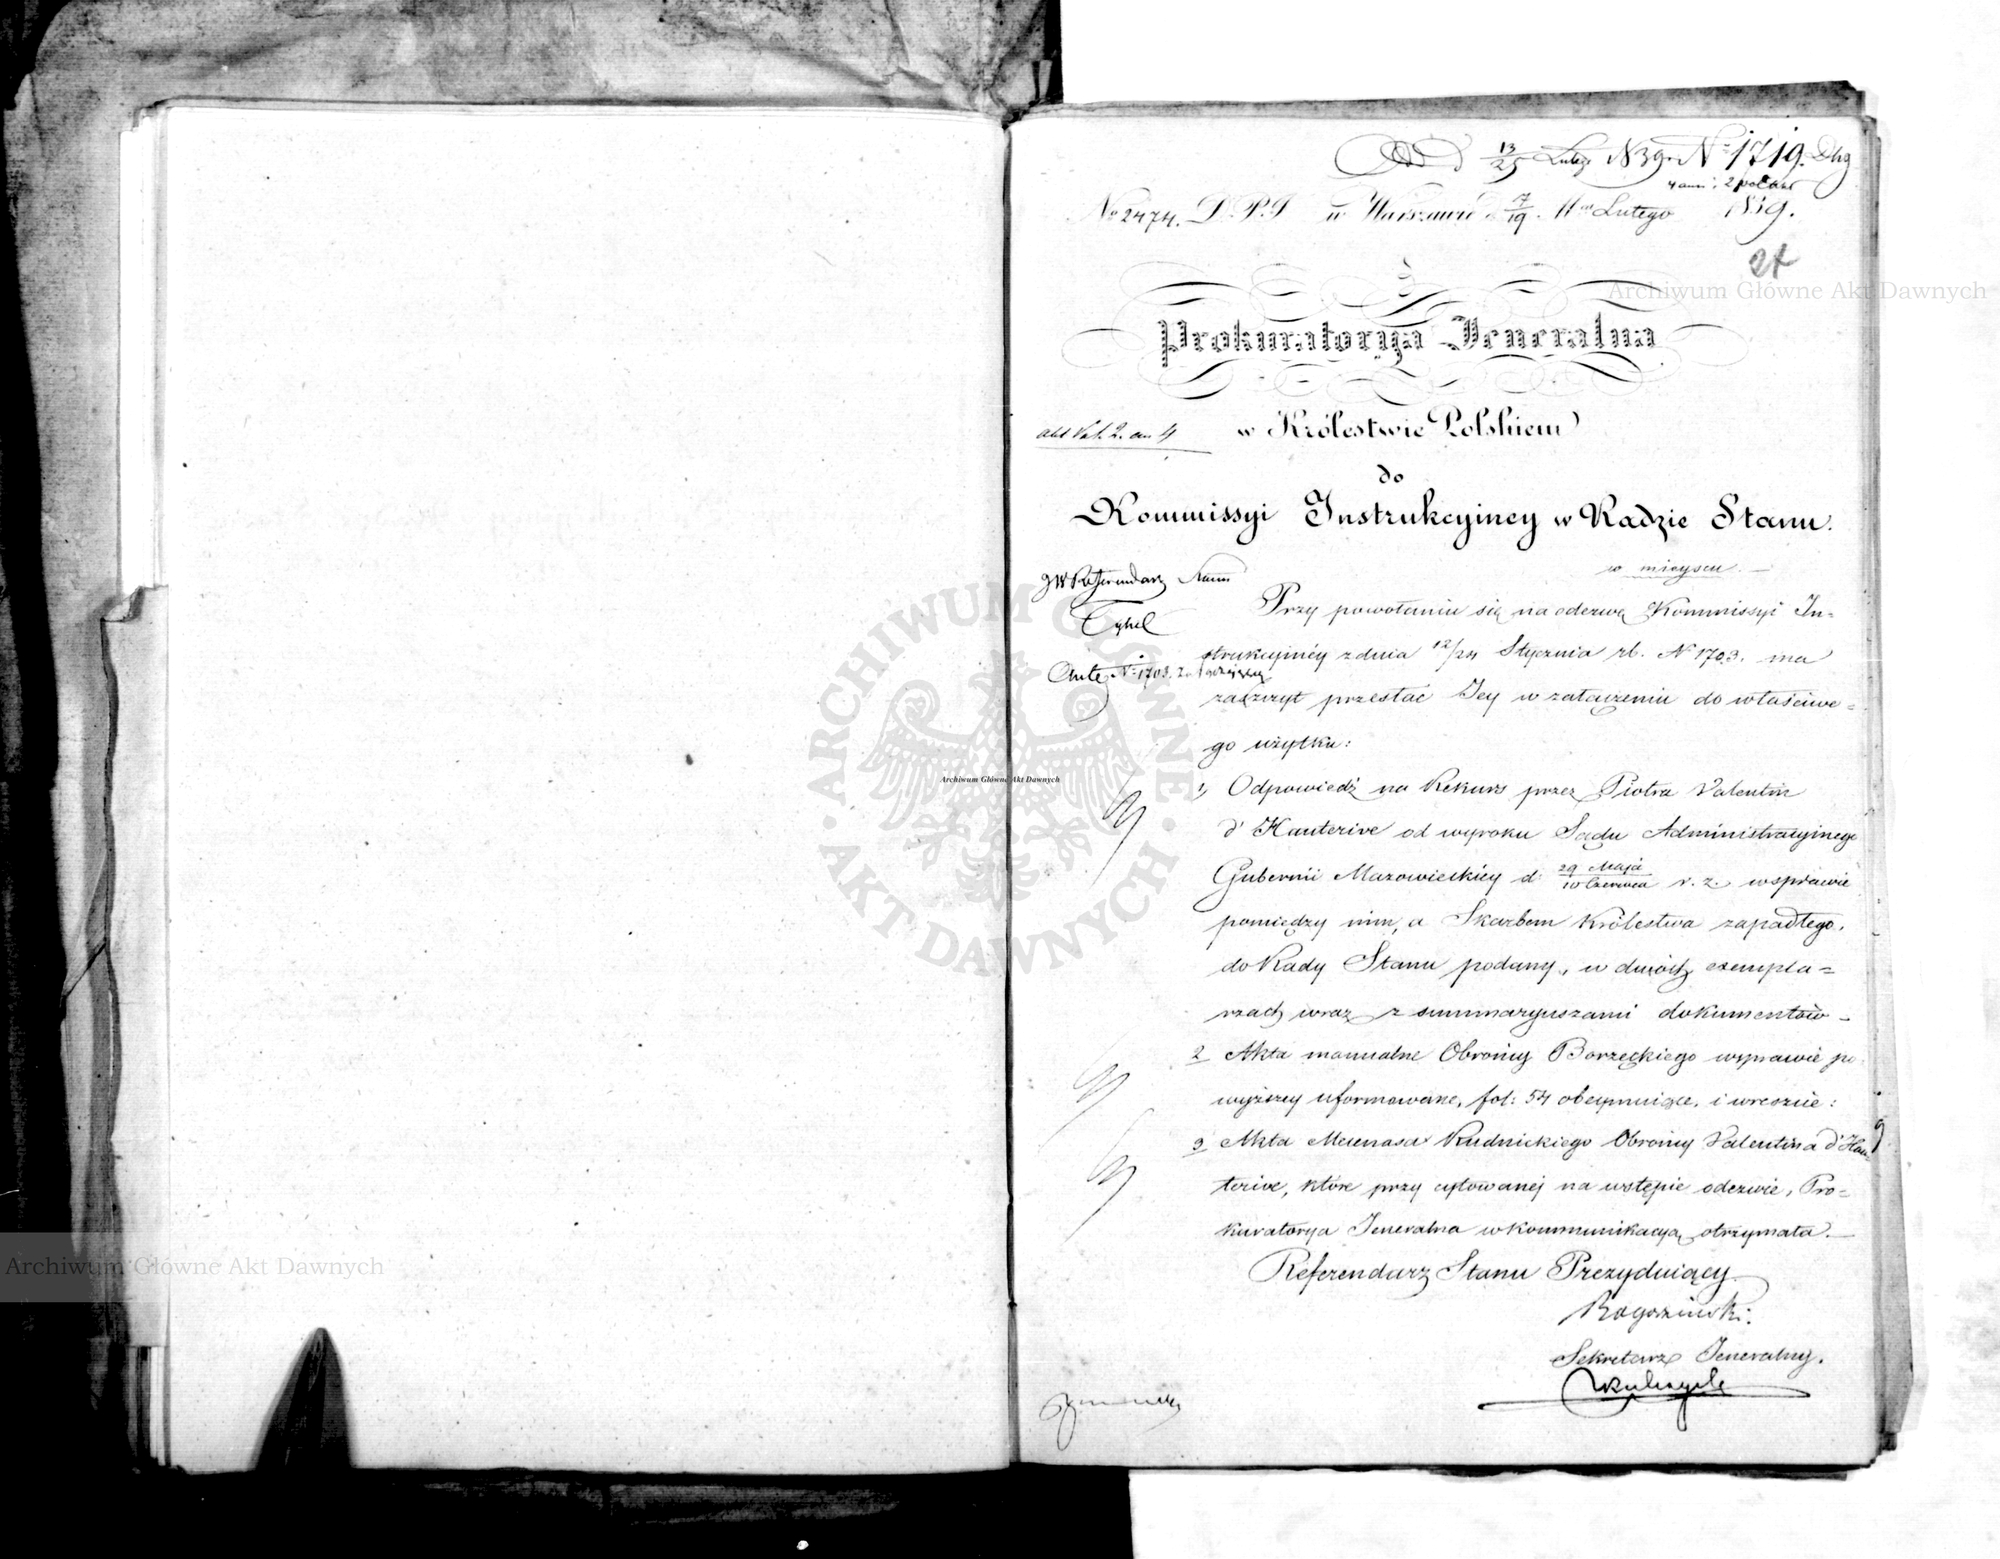 13/25 Luteg 839 N 1719. Dhg
4 anni: 2 poźne
No 2474. D. P. I w Warszawie d 7/19 Mca Lutego 1839.
24
Prokuratorya Jeneralna
w Królestwie Polskiem
do
Kommissyi Instrukcyiney w Radzie Stanu.
w mieyscu.
JW Referendarz Stanu
Tykel
Ante N 1703.
Przy powołaniu się na odezwę Kommissyi In-
strukcyinéy z dnia 12/24 Stycznia rb. N 1703. ma
zaszczyt przesłać Jey w załączeniu do właściwe=
go użytku:
1, Odpowiedź na Rekurs przez Piotra Valentin
d'Hauterive od wyroku Sądu Administracyinego
Gubernii Mazowieckiey d: 29 Maja/10 Czerwca r. z. w sprawie
pomiędzy nim, a Skarbem Królestwa zapadłego,
do Rady Stanu podany, w dwóch exempla=
rzach wraz z summaryuszami dokumentów -
2 Akta manualne Obrońcy Borzęckiego w sprawie po
wyższey uformowane, fol: 54 obeymuiące, i wreszcie:
3 Akta Mecenasa Rudnickiego Obrońcy Valentina d'Hau-
terive, które przy cytowanéj na wstępie odezwie, Pro=
kuratorya Jeneralna w kommunikacyą otrzymała.
Referendarz Stanu Prezyduiący
Rogoziński.
Sekretarz Jeneralny.
Archiwum Główne Akt Dawnych
Archiwum Główne Akt Dawnych
Archiwum Główne Akt Dawnych
ARCHIWUM GŁÓWNE AKT DAWNYCH